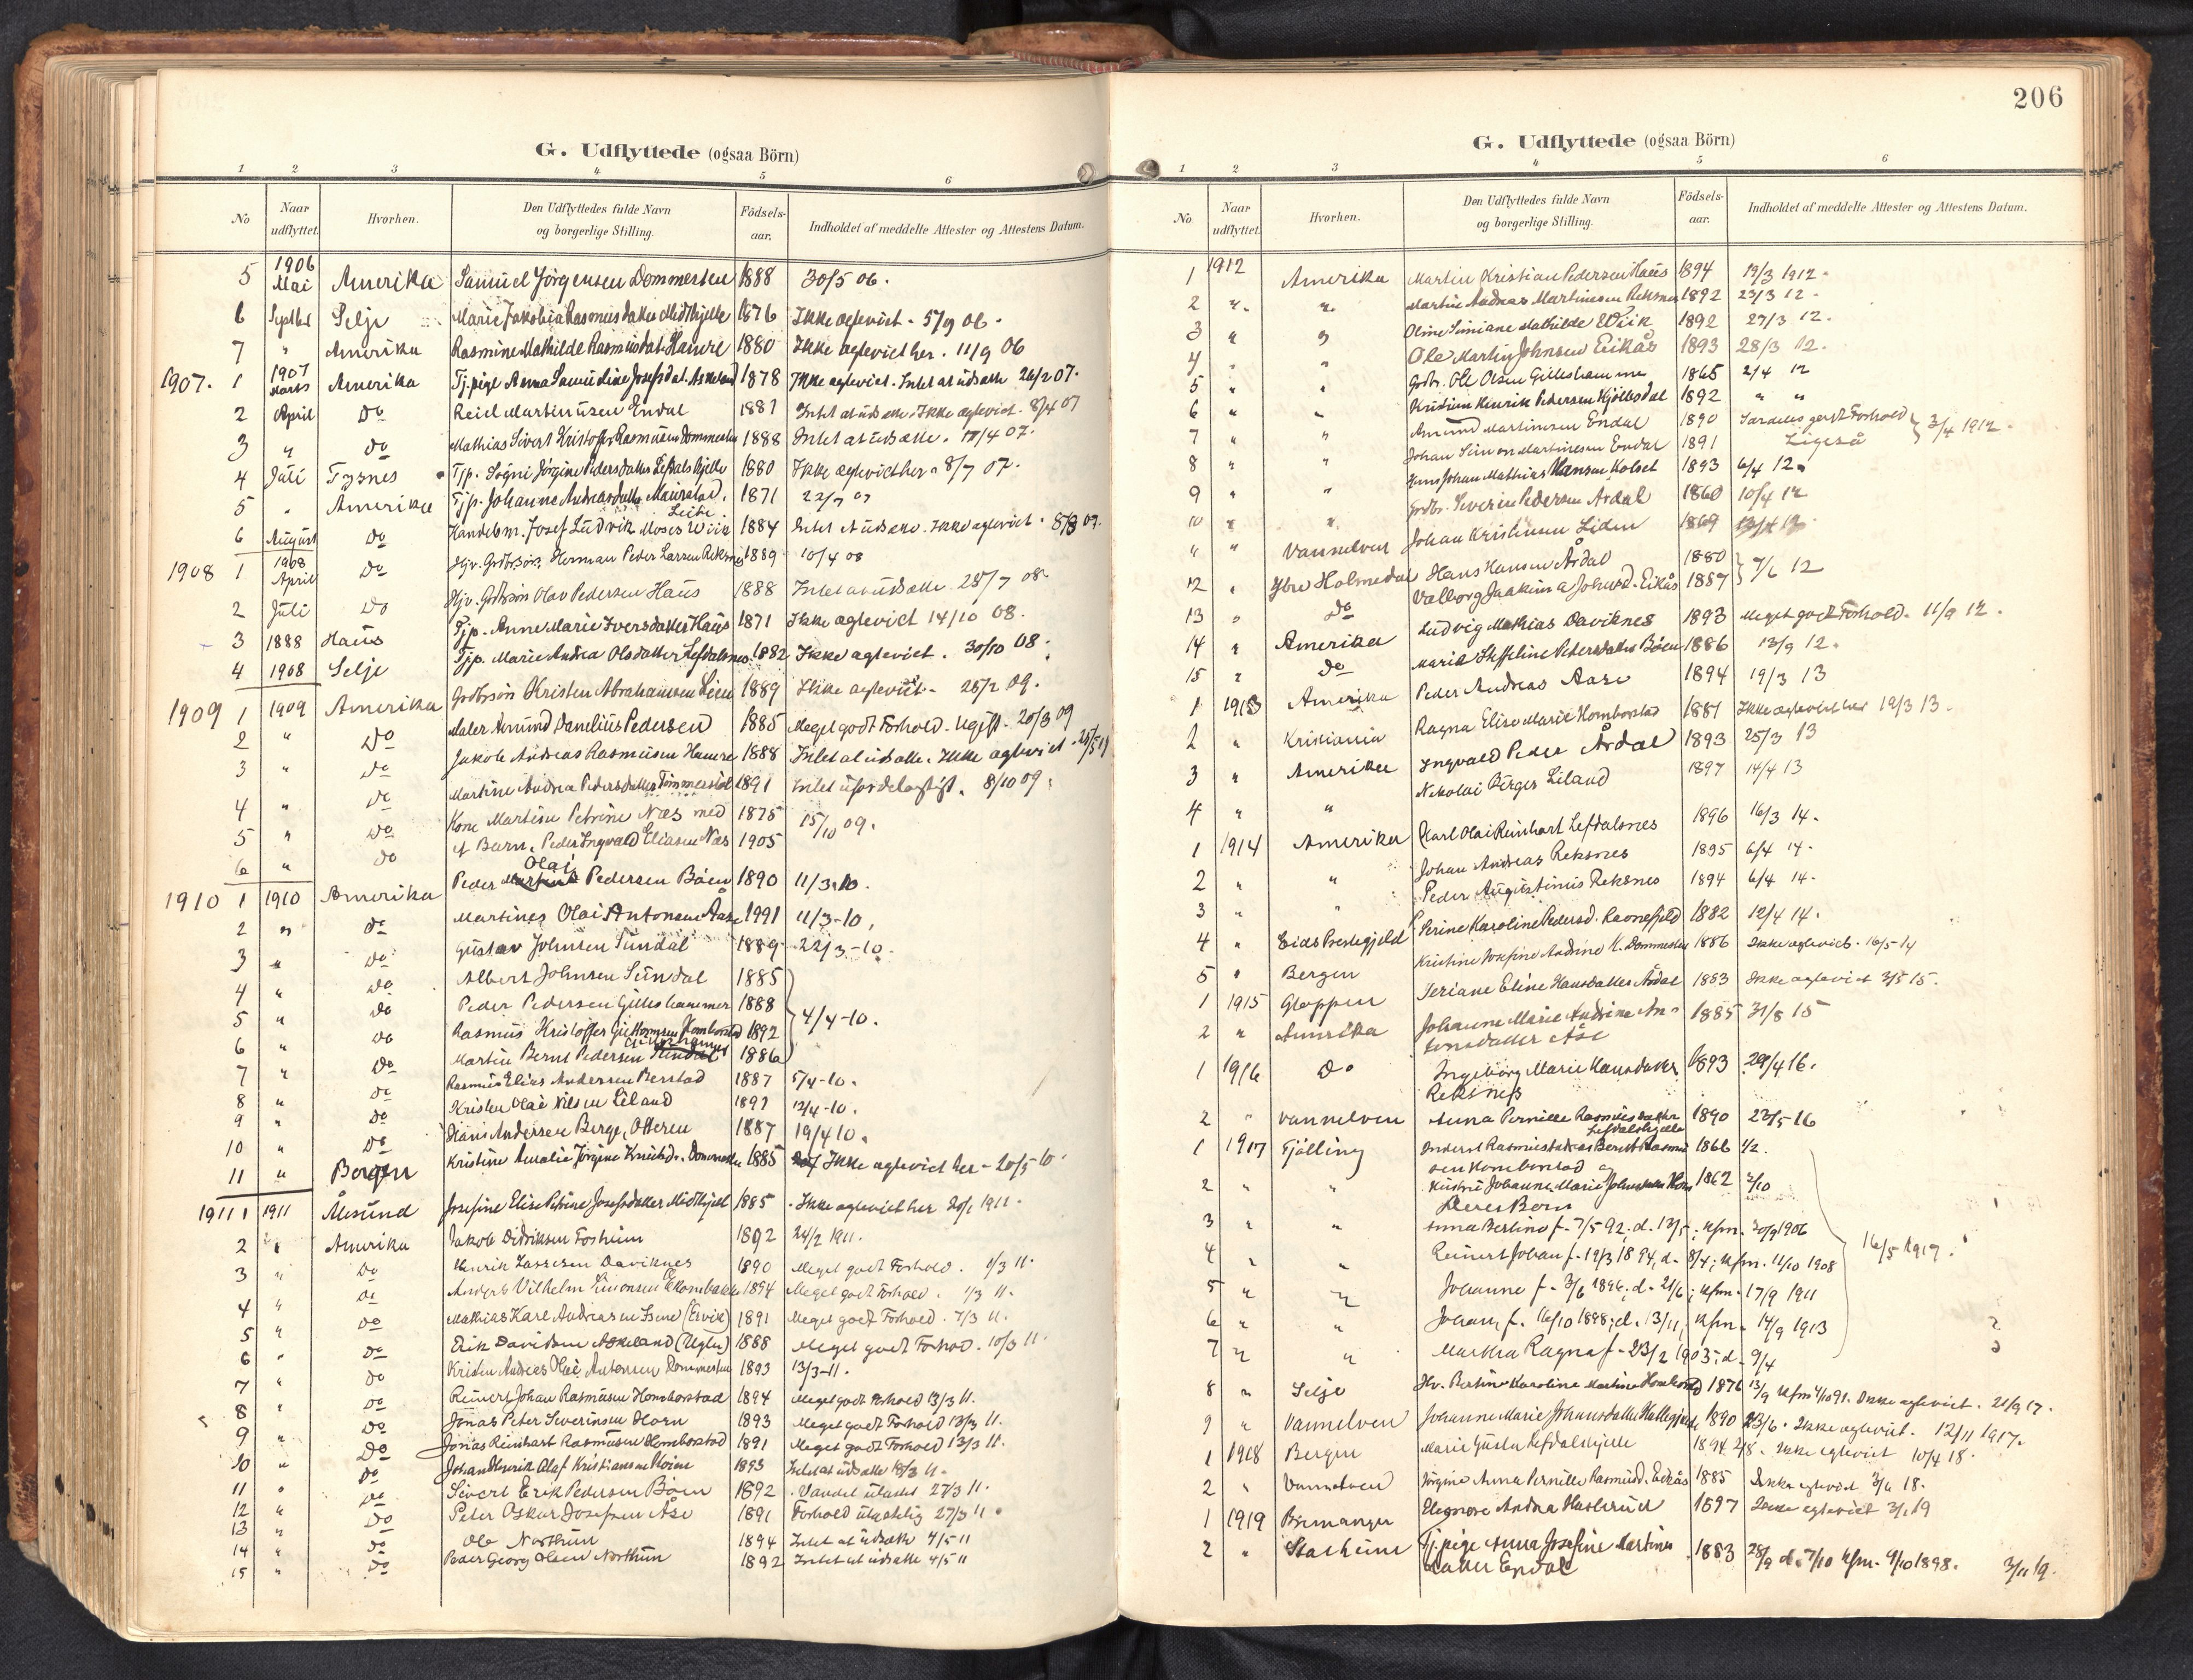 G. Udflyttede (ogsaa Börn)
1 2 3 4 5 6
No Naar udflyttet. Hvorhen. Den Udflyttedes fulde Navn og borgerlige Stilling. Födsels-aar. Indholdet af meddelte Attester og Attestens Datum.
5 1906 Mai Amerika Samuel Jørgensen Dommersten 1888 30/5 06.
6 Septbr Selje Marie Jakobia Rasmusdatter Midthjelle 1876 Ikke ægteviet. 5/9 06.
7 " Amerika Rasmine Mathilde Rasmusdat. Hamre 1880 Ikke ægteviet her. 11/9 06
1907. 1 1907 Marts Amerika Tj.pige Anna Samueline Josefsdat. Askeland 1878 Ikke ægteviet. Intet at udsætte 26/2 07.
2 April Do Reiel Martinusen Endal 1887 Intet at udsætte. Ikke ægteviet. 8/4 07
3 " do Mathias Sivert Kristoffer Rasmusen Dommersten 1888 Intet at udsætte. 18/4 07.
4 Juli Tysnes Tjp. Signi Jørgine Pedersdatter Lefdalshjelle 1880 Ikke ægteviet her. 8/7 07.
5 " Amerika Tjp. Johanne Andreasdatter Maurstad. 1871 22/7 07
6 August Do Handelsm. Josef Ludvik Moses Wiik 1884 Intet at udsætte. Ikke ægteviet. 8/8 07.
1908 1 1908 April Do Ugv. Grdbrsøn. Herman Peder Larsen Reksnes 1889 10/4 08
2 Juli Do Ugv. Grdbrsøn Olav Pedersen Haus 1888 Intet at udsætte 28/7 08.
3 1888 Haus Tjp. Anne Marie Iversdatter Haus 1871 Ikke ægteviet 14/10 08.
4 1908 Selje Tjp. Marie Andrea Olsdatter Lefdalsnes. 1882 Ikke ægteviet. 30/10 08.
1909 1 1909 Amerika Grdbrsøn Kristen Abrahamsen Leen 1889 Ikke ægteviet. 25/2 09.
2 " Do Maler Amund Danelius Pedersen 1885 Meget godt Forhold. Ugift. 20/3 09
3 " do Jakob Andreas Rasmusen Hamre 1888 Intet at udsætte. Ikke ægteviet
4 " do Martine Andrea Pedersdatter Tømmerstøl 1891 Intet ufordelagtigt. 8/10 09.
5 " Do Kone Martine Petrine Næs med 1875 15/10 09.
6 " do et Barn. Peder Ingvald Eliasen Næs 1905
1910 1 1910 Amerika Peder Olai Pedersen Böen 1890 11/3.10.
2 " do Martines Olai Antonsen Åse 1991 11/3-10.
3 " do Gustav Johnsen Sundal 1889 22/3-10.
4 " do Albert Johnsen Sundal 1885
5 " do Peder Pedersen Gilleshammer 1888 4/4-10.
6 " do Rasmus Kristoffer Guttormsen Homborstad 1892
7 " Do Martin Bernt Pedersen Gilleshammer 1886
8 " do Rasmus Elias Andersen Berstad 1887 5/4-10.
9 " do Kristen Olai Nilsen Liland 1891 12/4-10.
10 " Do Hans Andersen Berge, Otteren 1887 19/4 10.
11 " Bergen Kristine Amalie Jørgine Knutsd. Dommersten 1885 Ikke ægteviet her - 20/5-10.
1911 1 1911 Ålesund Josefine Elise Petrine Josefsdatter Midthjell 1885 Ikke ægteviet her 20/1 1911.
2 " Amerika Jakob Didriksen Fosheim 1892 24/2 1911.
3 " do Henrik Lassesen Daviknes 1890 Meget godt Forhold. 1/3 11.
4 " do Anders Vilhelm Simonsen 1894 Meget godt Forhold. 1/3 11.
5 " do Mathias Karl Andreasen Isene (Ervik) 1891 Meget godt Forhold. 7/3 11.
6 " do Erik Davidsen Askeland (Uglen) 1888 Meget godt Forhold. 10/3 11.
7 " do Kristen Andreas Olai Antonsen Dommersten 1893 13/3-11.
8 " do Reinert Johan Rasmusen Homborstad 1894 Meget godt Forhold 13/3 11.
9 " do Jonas Peter Severinsen Horn 1893 Meget godt Forhold 13/3 11.
10 " Do Jonas Reinhart Rasmusen Homborstad 1891 Meget godt Forhold 13/3 11.
11 " do Johan Henrik Olaf Kristiansen 1893 Intet at udsætte 18/3 11.
12 " do Sivert Erik Pedersen Böen 1892 Vandel ulastet 27/3 11.
13 " do Peter Oskar Josefsen Åse 1891 Forhold ulastelig 27/3 11.
14 " do Ole Northun 1894 Intet at udsætte 4/5 11
15 " do Peder Georg Olsen Northun 1892 Intet at udsætte 4/5 11
206
G. Udflyttede (ogsaa Börn)
1 2 3 4 5 6
No Naar udflyttet. Hvorhen. Den Udflyttedes fulde Navn og borgerlige Stilling. Födsels-aar. Indholdet af meddelte Attester og Attestens Datum.
1 1912 Amerika Martin Kristian Pedersen Haus 1894 19/3 1912.
2 " " Martin Andreas Martinusen Reksnes 1892 23/3 12.
3 " " Oline Simiane Mathilde Wiik 1892 27/3 12.
4 " " Ole Martin Johnsen Eikås 1893 28/3 12.
5 " " Grdbr. Ole Olsen Gilleshammer 1865 2/4 12
6 " " Kristian Henrik Pedersen Hjöllesdal 1892 " "
7 " " Amund Martinusen Endal 1890 Særdeles godt Forhold 3/4 1912.
8 " " Johan Simon Martinusen Endal 1891 Ligeså
9 " " Jens Johan Mathias Hansen Kolset 1893 6/4 12.
10 " " Grdbr. Severin Pedersen Årdal 1860 10/4 12
11 " Vannelven Johan Kristensen Liden 1869
12 " Ytre Holmedal Hans Hansen Årdal 1880 7/6 12
13 " do Valborg Joakima Johansd. Eikås 1887
14 " Amerika Ludvig Mathias Daviknes 1893 Meget godt Forhold. 11/9 12.
15 " do Marie Steffeline Pedersdatter Böen 1886 13/9 12.
1 1913 Amerika Peder Andreas Aase 1894 19/3 13
2 " Kristiania Ragna Elise Marie Homborstad 1887 Ikke ægteviet her 19/3 13.
3 " Amerika Ingvald Peder Årdal 1893 25/3 13
4 " " Nikolai Birger Liland 1897 14/4 13
1 1914 Amerika Karl Olai Reinhart Lefdalsnes 1896 16/3 14.
2 " " Johan Andreas Reksnes 1895 6/4 14.
3 " " Peder Augustinus Reksnes 1894 6/4 14.
4 " Eids Prestegjeld Serine Karoline Pedersd. Ravnefjeld 1882 12/4 14.
5 " Bergen Kristine Josefine Andrine K. Dommersten 1886 Ikke ægteviet. 16/5-14
1 1915 Gloppen Seriane Eline Hansdatter Årdal 1883 Ikke ægteviet 3/5 15.
2 " Amerika Johanne Marie Andrine Antonsdatter Åse 1885 31/8 15
1 1916 Do Ingeborg Marie Hansdatter Reksnes 1893 29/4 16.
2 " Vannelven Anna Pernille Rasmusdatter Lefdalshjelle 1890 23/5-16
1 1917 Fjølling Bernt Rasmussen Homborstad og 1866 1/2.
2 " " Hustru Johanne Marie 1862 2/10
Deres Born
3 " " Anna Bertine f. 7/5 92, d. 13/5; kfm. 30/9 1906
4 " " Reinert Johan f. 19/3 1894, d. 8/4; kfm. 11/10 1908 16/5 1917.
5 " " Johanne f. 3/6 1896, d. 21/6; kfm. 17/9 1911
6 " " Johan, f. 16/10 1898; d. 13/11, kfm. 14/9 1913
7 " " Markra Ragna f. 23/2 1905; d. 9/4
8 " Selje Hv. Bertine Karoline Martine Homborstad 1876 13/9 kfm 4/10 91. Ikke ægteviet. 21/9 17.
9 " Vannelven Johanne Marie Johansdatter 1890 23/6. Ikke ægteviet. 12/11 1917.
1 1918 Bergen Marie Gusta Lefdalshjelle 1894 2/8. Ikke ægteviet 10/4 18.
2 " Vannelven Jörgine Anna Pernille Rasmusd. Eikås 1885 Ikke ægteviet 3/6 18.
1 1919 Bremanger Eleonore Andrea 1897 Ikke ægteviet 3/1 19
2 " Starheim Tj.pige Anna Josefine Martinusdatter Endal 1883 28/9 d. 7/10 kfm. 9/10 1898. 3/11 19.